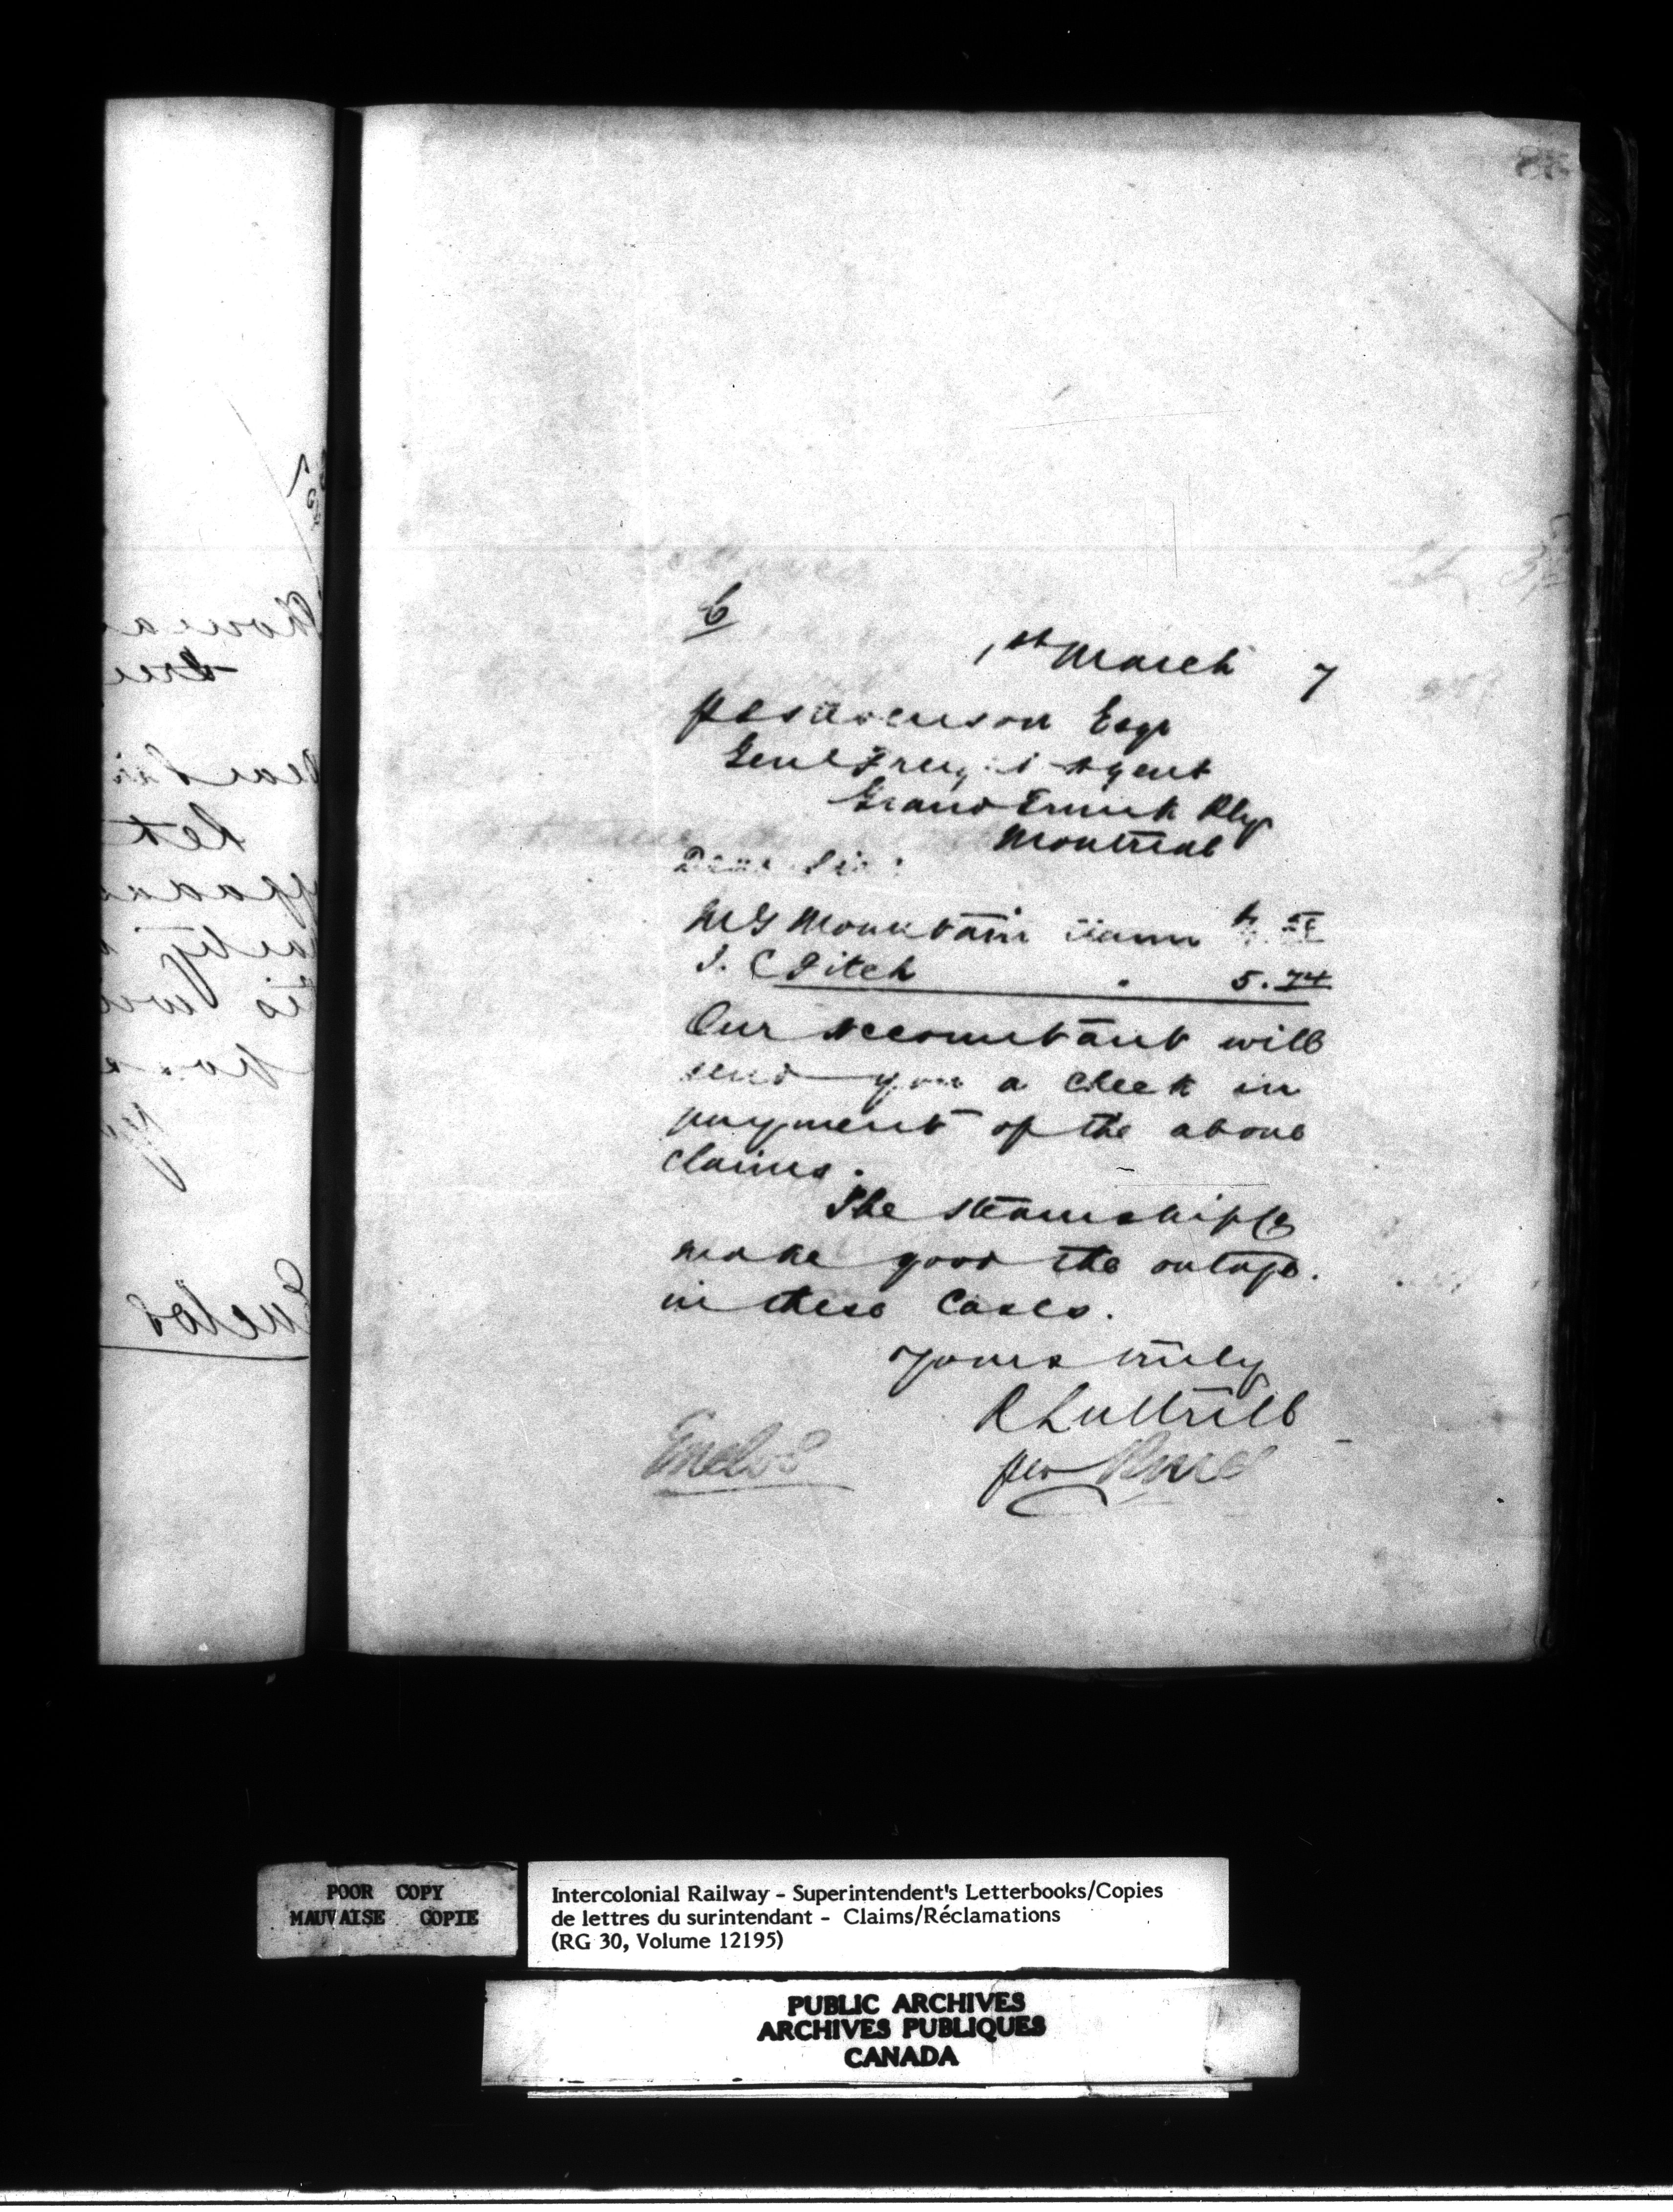 C
1st March 7
P S Stevenson Esqr
Genl Freight Agent
Grand Trunk Rly
Montreal
Dear Sir:
Mountain Claim
J. C Fitch " 5.74
Our Accountant will
send you a check in
payment of the above
claims.
The Steamship Co
make good the outage.
in these Cases.
Yours truly
R Luttrell
per
Enclos
POOR COPY
MAUVAISE COPIE
Intercolonial Railway - Superintendent's Letterbooks/Copies
de lettres du surintendant - Claims/Réclamations
(RG 30, Volume 12195)
PUBLIC ARCHIVES
ARCHIVES PUBLIQUES
CANADA